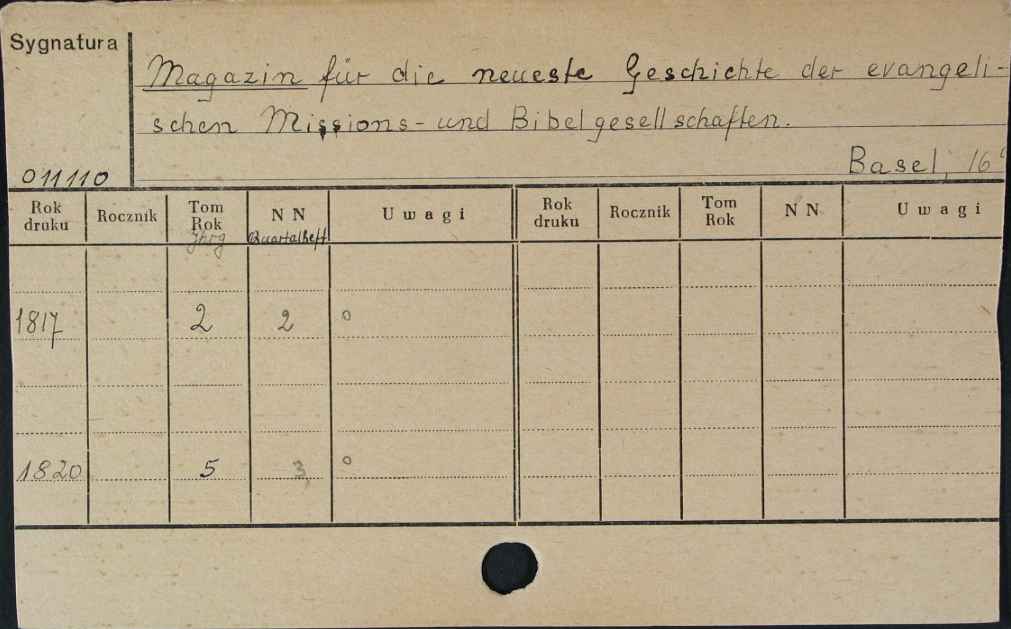 Sygnatura
Magazin für die neueste Geschichte der evangeli-
schen Missions- und Bibelgesellschaften.
Basel, 16°
011110
Rok druku Rocznik Tom Rok Jhrg N N Quartalheft Uwagi Rok druku Rocznik Tom Rok N N Uwagi
1817 2 2 o
1820 5 3 o